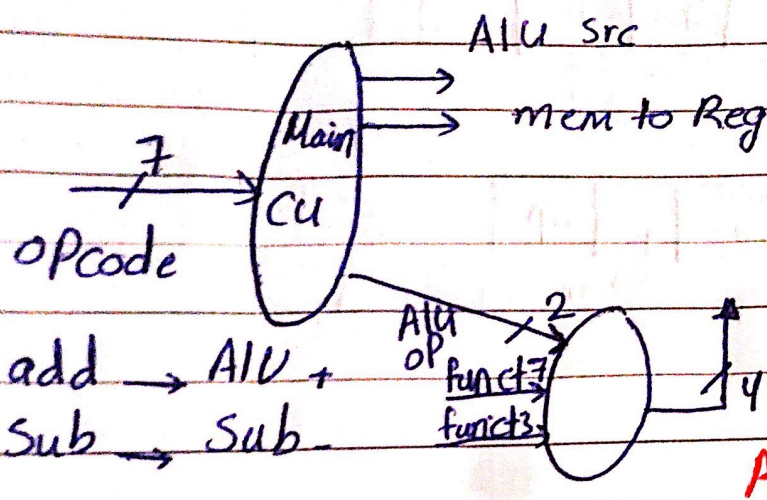 ALU Src
mem to Reg
Main
CU
7
opcode
ALU
OP
2
funct7
funct3
4
add → ALU +
Sub → Sub -